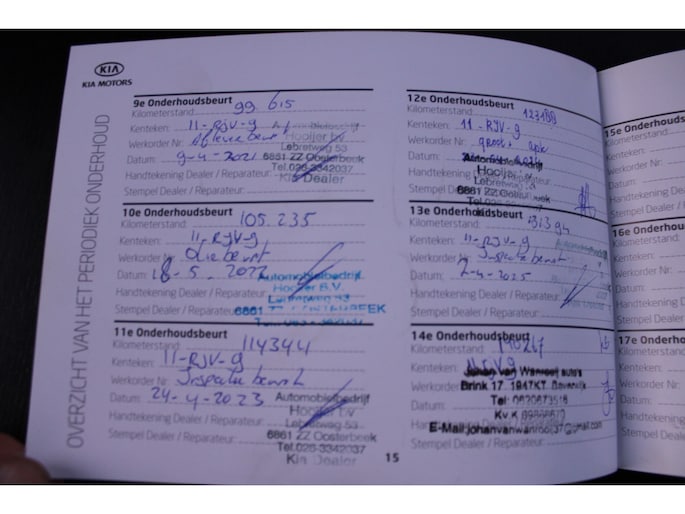 KIA
KIA MOTORS
OVERZICHT VAN HET PERIODIEK ONDERHOUD
9e Onderhoudsbeurt
Kilometerstand: 99 615
Kenteken: 11-RJV-9
Werkorder Nr: Aflever beurt
Datum: 9-4-2021
Handtekening Dealer / Reparateur:
Stempel Dealer / Reparateur:
Hooijer bv
Lebretweg 53
6861 ZZ Oosterbeek
Tel.026-3342037
Kia Dealer
10e Onderhoudsbeurt
Kilometerstand: 105.235
Kenteken: 11-RJV-9
Werkorder Nr: Olie beurt
Datum: 18-5-2022
Handtekening Dealer / Reparateur:
Stempel Dealer / Reparateur:
Automobielbedrijf
Hooijer B.V.
Lebretweg 53
6861 ZZ OOSTERBEEK
11e Onderhoudsbeurt
Kilometerstand: 114344
Kenteken: 11-RJV-9
Werkorder Nr: Inspectie beurt
Datum: 24-4-2023
Handtekening Dealer / Reparateur:
Stempel Dealer / Reparateur:
Automobielbedrijf
Hooijer bv
Lebretweg 53
6861 ZZ Oosterbeek
Tel.026-3342037
Kia Dealer
15
12e Onderhoudsbeurt
Kilometerstand:
Kenteken: 11-RJV-9
Werkorder Nr:
Datum:
Handtekening
Stempel
Automobielbedrijf
Hooijer
Lebretweg
6861 ZZ
13e Onderhoudsbeurt
Kilometerstand: 131394
Kenteken: 11-RJV-9
Werkorder Nr: Inspectie beurt
Datum: 2-4-2025
Handtekening Dealer / Reparateur:
Stempel Dealer / Reparateur:
14e Onderhoudsbeurt
Kilometerstand: 140267
Kenteken:
Werkorder
Datum:
Handtekening
Stempel Dealer / Reparateur:
Johan van Wanrooij auto's
Brink 17 1947KT Beverwijk
Tel: 0620673516
Kv.K
E-Mail:johanvanwanrooij37@gmail.com
15e Onderhouds
Kilometerstand:
Kenteken:
Werkorder Nr:
Datum:
Handtekening
Stempel Dealer
16e Onderhou
Kilometerstand:
Kenteken:
Werkorder Nr
Datum:
Handtekening
Stempel Deale
17e Onderho
Kilometerstand
Kenteken:
Werkorder N
Datum: